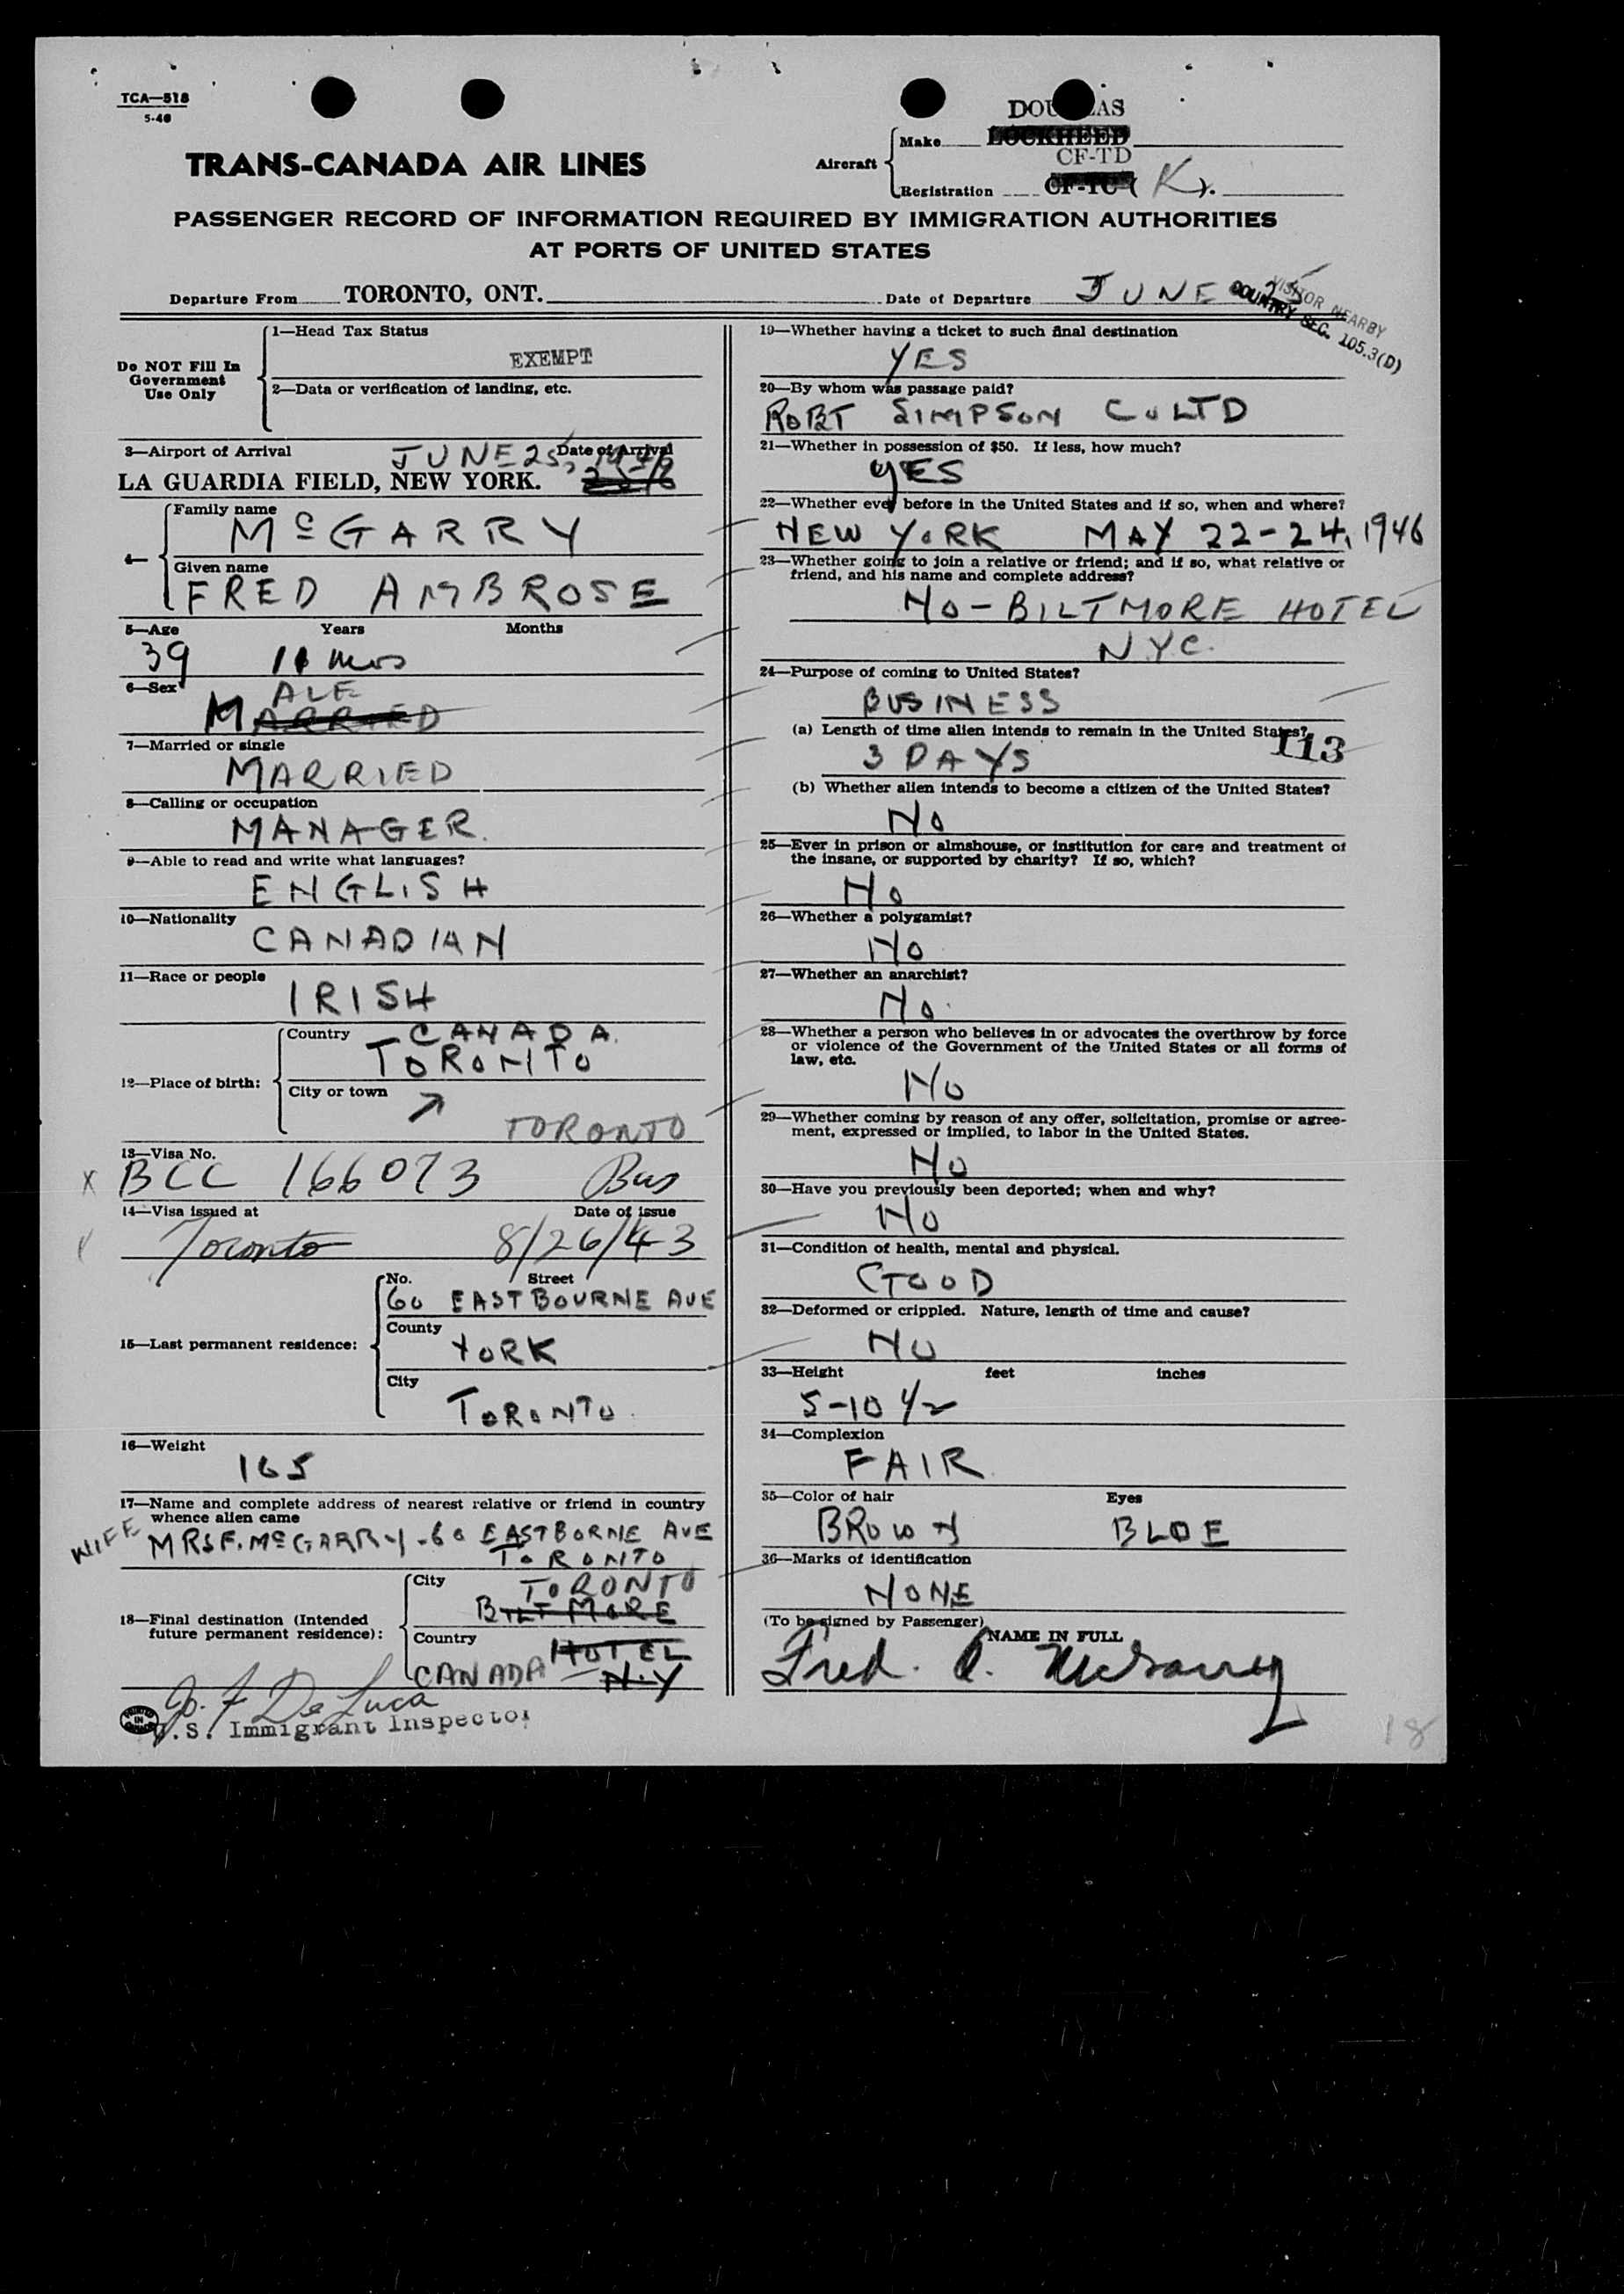 TCA—518
5-46
DOUGLAS
Aircraft
Make LOCKHEED
CF-TD
Registration CF-TC (K).
TRANS-CANADA AIR LINES
PASSENGER RECORD OF INFORMATION REQUIRED BY IMMIGRATION AUTHORITIES
AT PORTS OF UNITED STATES
Departure From TORONTO, ONT.
Date of Departure JUNE 25
VISITOR NEARBY
COUNTRY SEC. 105.3(D)
Do NOT Fill In
Government
Use Only
1—Head Tax Status
EXEMPT
2—Data or verification of landing, etc.
3—Airport of Arrival
Date of Arrival
JUNE 25, 1946
LA GUARDIA FIELD, NEW YORK.
4—
Family name
McGARRY
Given name
FRED AMBROSE
5—Age Years Months
39 mos
6—Sex
MALE
MARRIED
7—Married or single
MARRIED
8—Calling or occupation
MANAGER.
9—Able to read and write what languages?
ENGLISH
10—Nationality
CANADIAN
11—Race or people
IRISH
12—Place of birth:
Country CANADA.
TORONTO
City or town
TORONTO
13—Visa No.
X BCC 166073 Bus
14—Visa issued at Date of issue
Toronto 8/26/43
15—Last permanent residence:
No. Street
60 EASTBOURNE AVE
County
YORK
City
TORONTO.
16—Weight
165
17—Name and complete address of nearest relative or friend in country
whence alien came
WIFE MRS F. McGARRY - 60 EASTBORNE AVE
TORONTO
18—Final destination (Intended
future permanent residence):
City TORONTO
BILTMORE
Country HOTEL
CANADA N.Y
J. F. De Luca
U.S. Immigrant Inspector
PRINTED
IN
CANADA
19—Whether having a ticket to such final destination
YES
20—By whom was passage paid?
ROBT SIMPSON CO LTD
21—Whether in possession of $50. If less, how much?
YES
22—Whether ever before in the United States and if so, when and where?
NEW YORK MAY 22-24, 1946
23—Whether going to join a relative or friend; and if so, what relative or
friend, and his name and complete address?
NO - BILTMORE HOTEL
N.Y.C.
24—Purpose of coming to United States?
BUSINESS
(a) Length of time alien intends to remain in the United States?
113
3 DAYS
(b) Whether alien intends to become a citizen of the United States?
NO
25—Ever in prison or almshouse, or institution for care and treatment of
the insane, or supported by charity? If so, which?
NO
26—Whether a polygamist?
NO
27—Whether an anarchist?
NO.
28—Whether a person who believes in or advocates the overthrow by force
or violence of the Government of the United States or all forms of
law, etc.
NO
29—Whether coming by reason of any offer, solicitation, promise or agree-
ment, expressed or implied, to labor in the United States.
NO
30—Have you previously been deported; when and why?
NO
31—Condition of health, mental and physical.
GOOD
32—Deformed or crippled. Nature, length of time and cause?
NO
33—Height feet inches
5-10 1/2
34—Complexion
FAIR
35—Color of hair Eyes
BROWN BLUE
36—Marks of identification
NONE
(To be signed by Passenger)
NAME IN FULL
Fred. A. McGarry
18